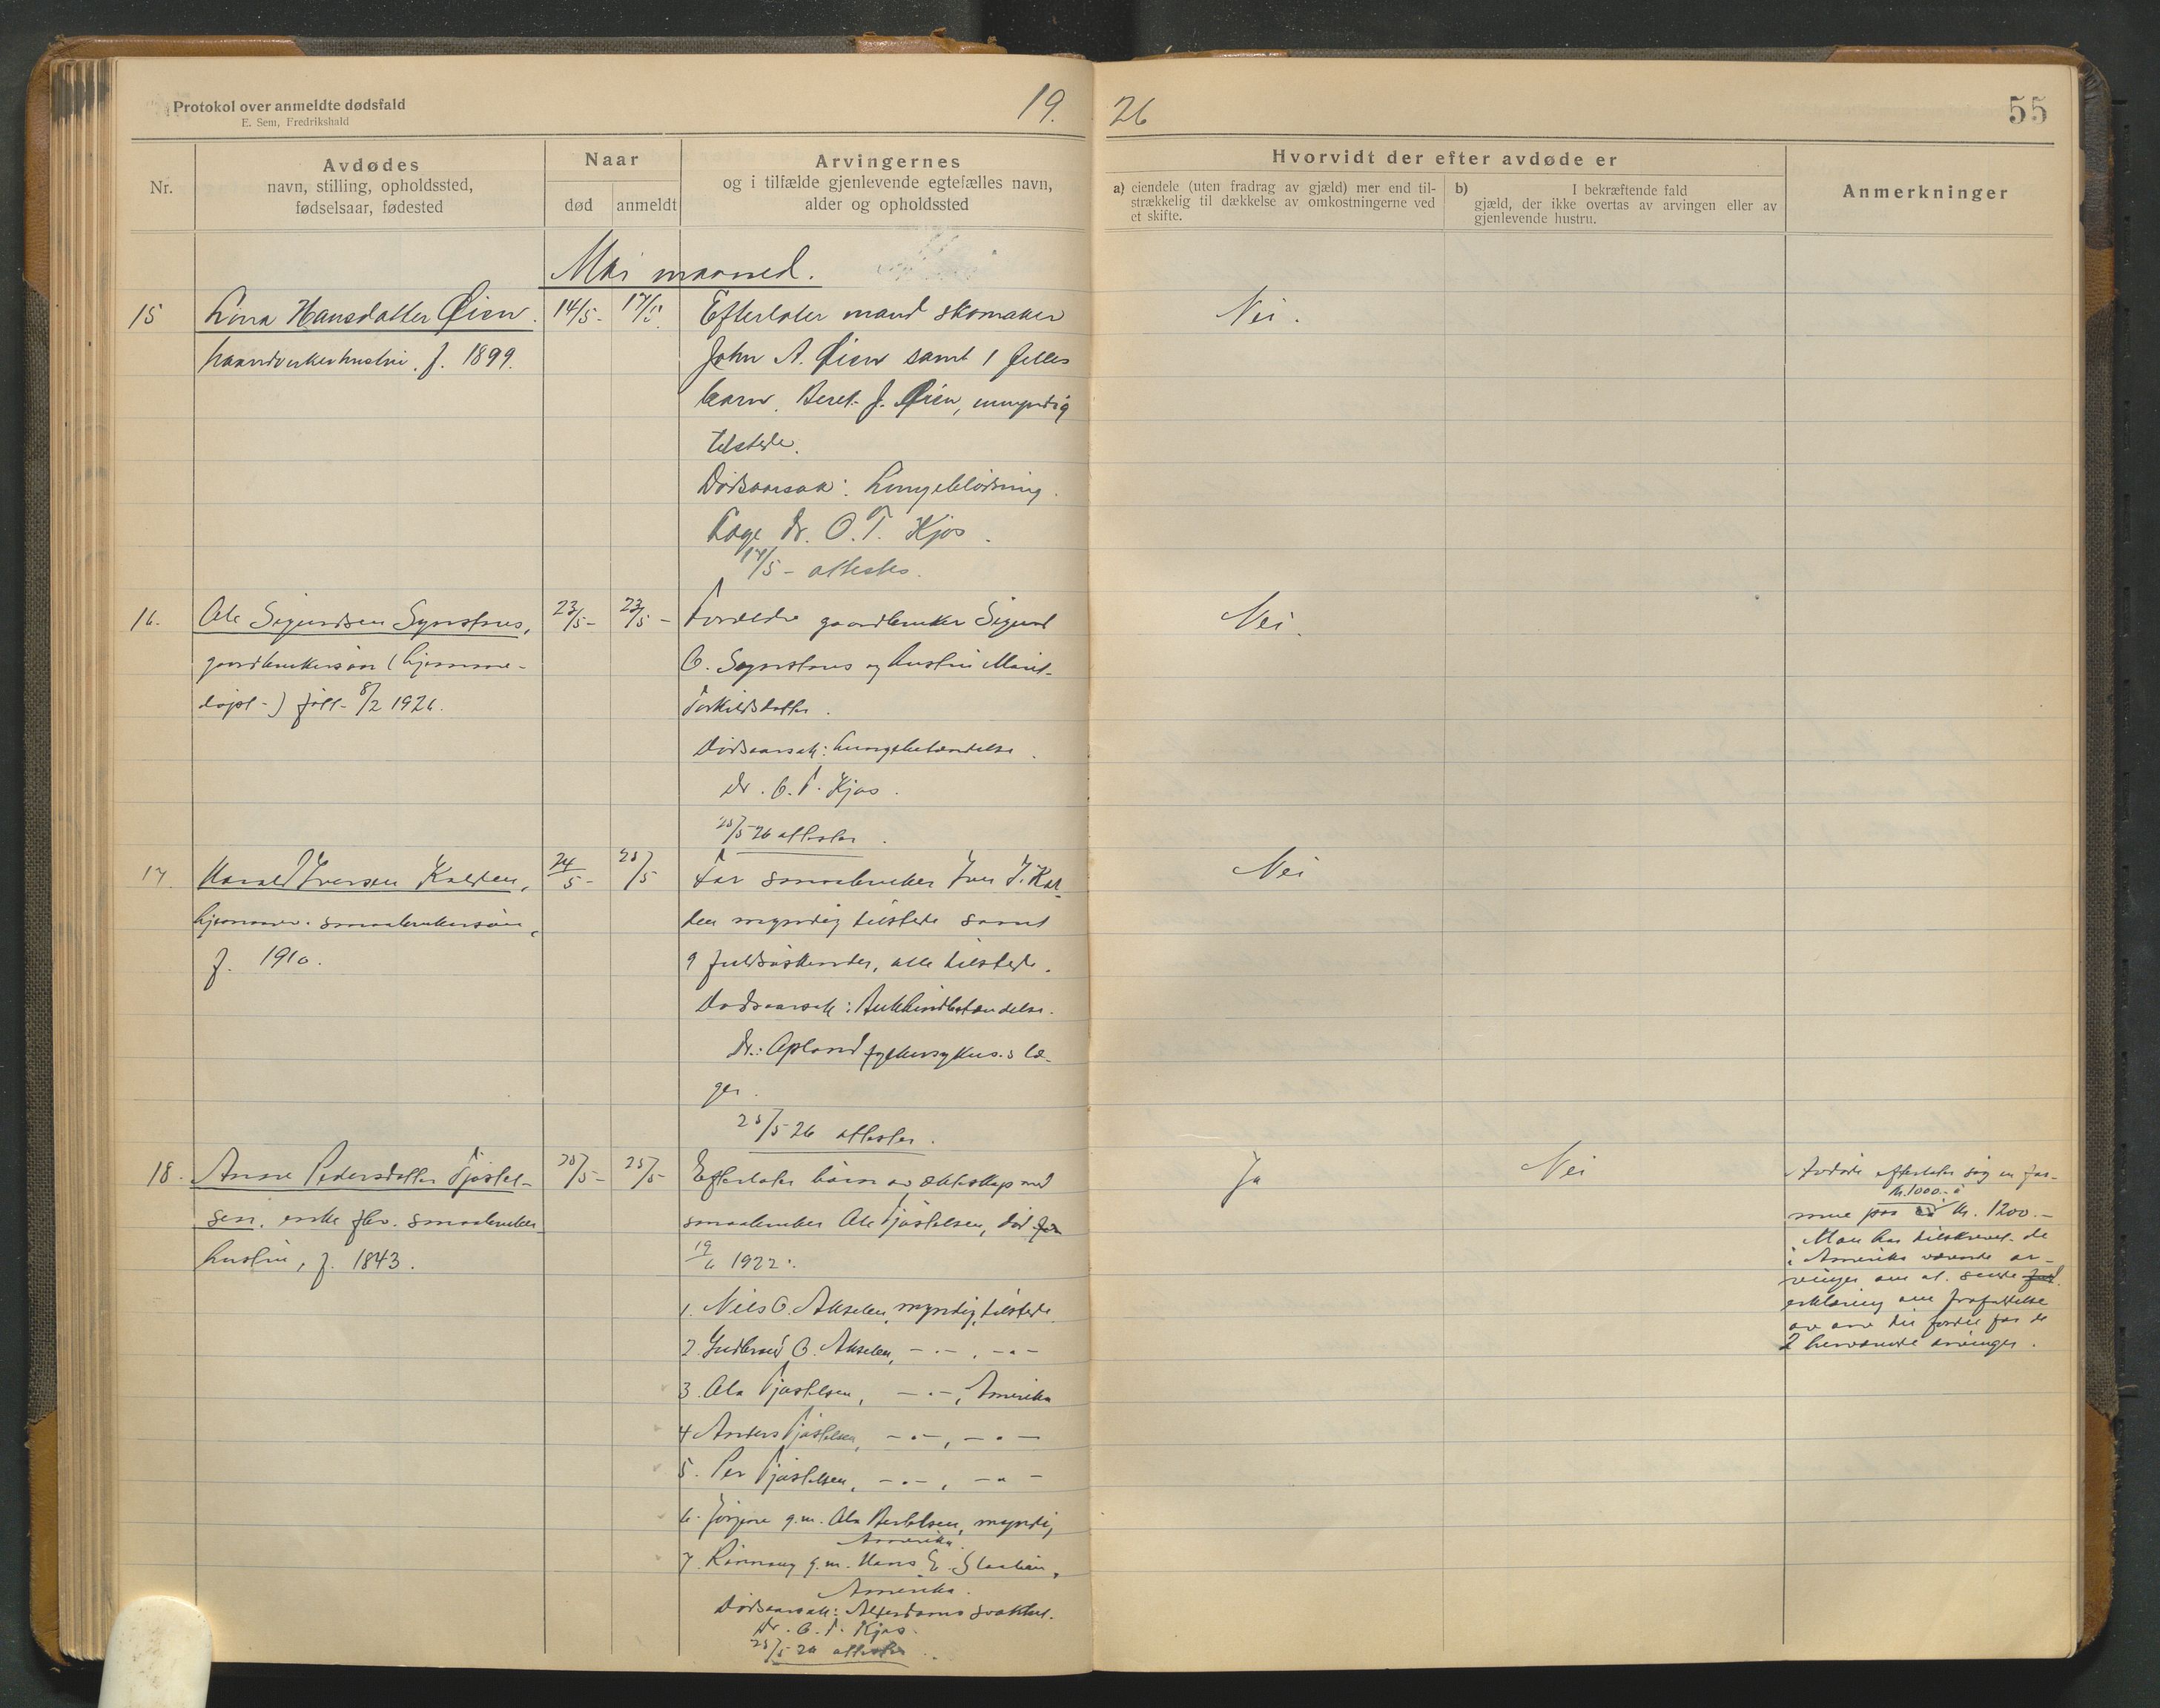 Protokol over anmeldte dødsfald
E. Sem, Fredrikshald
19.
26
55
Nr.
Avdødes
navn, stilling, opholdssted,
fødselsaar, fødested
Naar
død
anmeldt
Arvingernes
og i tilfælde gjenlevende egtefælles navn,
alder og opholdssted
Hvorvidt der efter avdøde er
a) eiendele (uten fradrag av gjæld) mer end til-
strækkelig til dækkelse av omkostningerne ved
et skifte.
b) I bekræftende fald
gjæld, der ikke overtas av arvingen eller av
gjenlevende hustru.
Anmerkninger
Mai maaned.
15
Hansdatter Øien.
haandverkerhustru. f. 1899.
14/5-
17/5.
Efterlater mand skomaker
John A. Øien samt 1 felles
barn. Beret J. Øien, umyndig
tilstede.
Dødsaarsak: Lungeblødning.
Læge Dr. O. T. Kjos.
17/5- attester.
Nei.
16.
Ole Sigurdsen Synstnes,
gaardbrukersøn (hjemme-
døpt-) født 8/2 1926.
23/5-
23/5-
Foreldre gaardbruker Sigurd
O. Synstnes og hustru Marit
Torkildsdatter.
Dødsaarsak: Lungebetændelse.
Dr. O. T. Kjos.
25/5 26 attester.
Nei.
17.
Harald Iversen Kalden,
hjemmev. smaabrukersøn,
f. 1910.
24/5-
25/5
Far smaabruker Iver I. Kal-
den myndig tilstede samt
9 fuldsøskender, alle tilstede.
Dødsaarsak: Bukhindbetændelse.
Dr.: Apland fylkessykeh.s læ-
ge.
25/5 26 attester.
Nei
18.
Anne Pedersdatter Tjøstel-
sen, enke fhv. smaabruker
hustru, f. 1843.
20/5-
25/5-
Efterlater børn av ekteskap med
smaabruker Ole Tjøstelsen, død
19/6 1922:
1. Nils O. Akselen, myndig, tilstede.
2. Gudbrand O. Akselen, -"-, -"-
3. Ola Tjøstelsen, -"-, Amerika
4 Anders Tjøstelsen, -"-, -"-
5. Per Tjøstelsen, -"-, -"-
6. Jørgine g.m. Ola Bertelsen, myndig
Amerika.
7. Rønnaug g.m. Hans E.
Amerika.
Dødsaarsak: Alderdoms svakhet.
Dr. O. T. Kjos.
25/5 26 attester.
Ja
Nei
Avdøde efterlater sig en for-
kr. 1000.- à
mue paa kr. 1200.-
Man har tilskrevet de
i Amerika værende ar-
vinger om at sende
erklæring om frafaldelse
av arv til fordel for de
2 herværende arvinger.